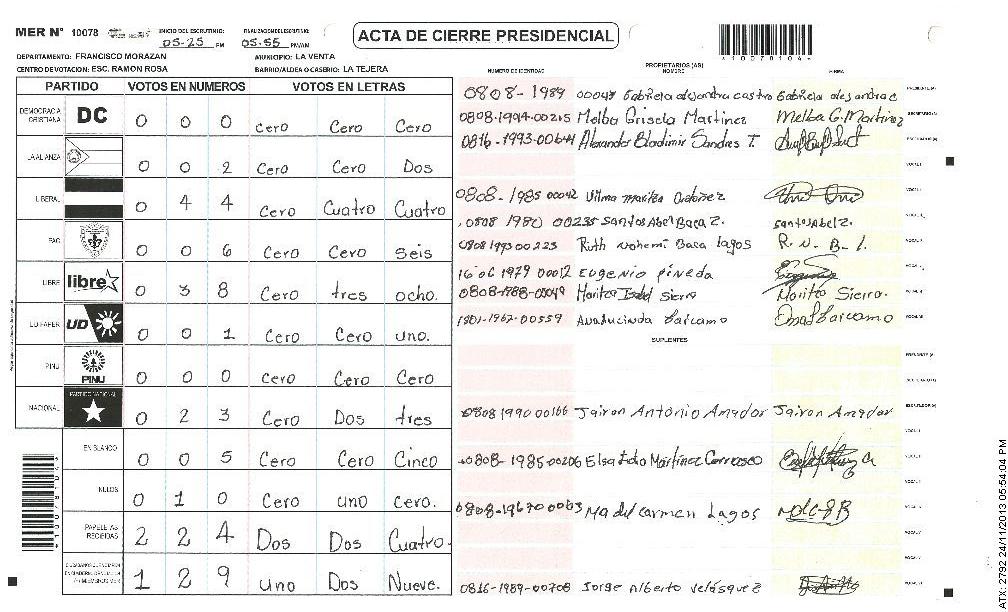 MER N° 10078 INICIO DEL ESCRUTINIO: 05-25 PM FINALIZACION DEL ESCRUTINIO: 05-55 PM/AM
ACTA DE CIERRE PRESIDENCIAL
*10078104*
DEPARTAMENTO: FRANCISCO MORAZAN MUNICIPIO: LA VENTA
CENTRO DE VOTACION: ESC. RAMON ROSA BARRIO/ALDEA O CASERIO: LA TEJERA
PARTIDO VOTOS EN NUMEROS VOTOS EN LETRAS
DEMOCRACIA CRISTIANA DC 0 0 0 Cero Cero Cero
LA ALIANZA 0 0 2 Cero Cero Dos
LIBERAL 0 4 4 Cero Cuatro Cuatro
PAC 0 0 6 Cero Cero Séis
LIBRE libre 0 3 8 Cero tres ocho.
UD FAPER UD 0 0 1 Cero Cero uno.
PINU PINU 0 0 0 Cero Cero Cero
NACIONAL PARTIDO NACIONAL 0 2 3 Cero Dos tres
EN BLANCO 0 0 5 Cero Cero Cinco
NULOS 0 1 0 Cero uno Cero.
PAPELETAS RECIBIDAS 2 2 4 Dos Dos Cuatro.
1 2 9 uno Dos Nueve.
NUMERO DE IDENTIDAD PROPIETARIOS (AS) NOMBRE FIRMA
0808-1989 00047 Gabriela alejandra castro Gabriela alejandra c PRESIDENTE (A)
0808-1994-00215 Melba Grisela Martinez Melba G. Martinez SECRETARIO (A)
0816-1993-00644 Alexander Bladimir Sandres T. ESCRUTADOR (A)
VOCAL I
0808-1985 00042 Vilma maritza Ordoñez
0808 1980 00235 Santos Abel Baca Z. santos Abel Z.
0808 1993 00223 Ruth Nohemi Baca Lagos R. N. B. L.
1979 00012 Eugenio pineda
0808-1988-00049 Maritza Isabel Sierra Maritza Sierra.
1801-1967-00559
SUPLENTES
PRESIDENTE (A)
SECRETARIO (A)
0808 1990 00166 Jairon Antonio Amador Jairon Amador ESCRUTADOR (A)
0808-1985-00206 Elsa Martinez Carrasco
0808-1967 00063 Ma del carmen Lagos
0816-1989-00708 Jorge Alberto velásquez
ATX 2792 24/11/2013 05:54:04 PM